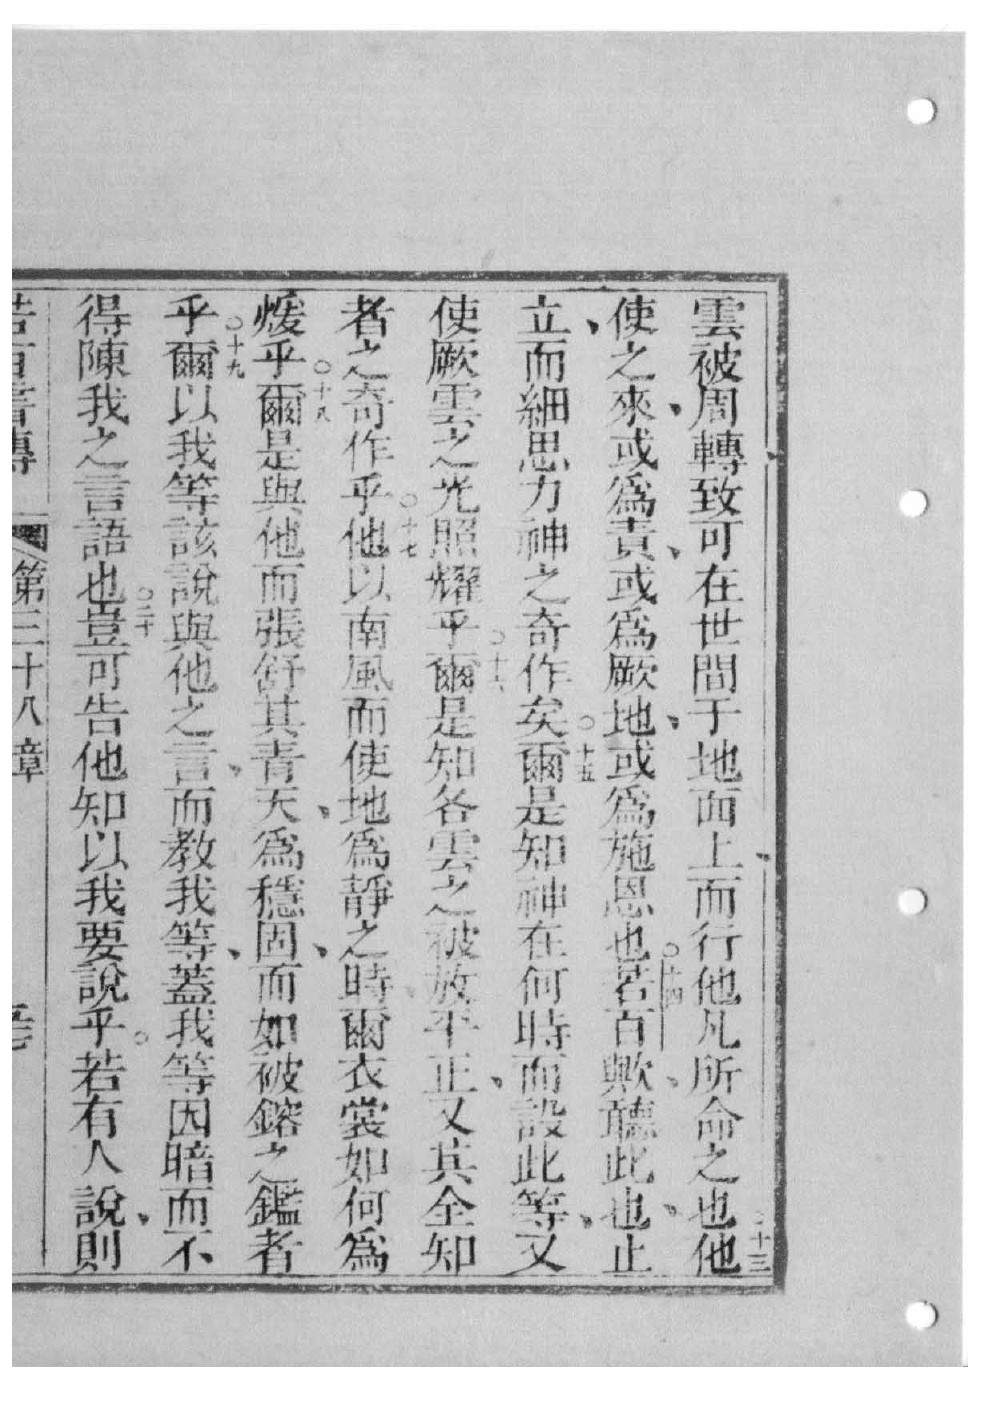 雲被周轉致可在世間于地面上、而行他凡所命之也○十三他
使之來、或爲責、或爲厥地、或爲施恩也○十四若百歟、聽此也、止
立、而細思力神之奇作矣○十五爾是知神在何時而設此等、又
使厥雲之光照耀乎○十六爾是知各雲之被放平正、又其全知
者之奇作乎○十七他以南風而使地爲靜之時、爾衣裳如何爲
煖乎○十八爾是與他而張舒其青天、爲穩固、而如被鎔之鑑者
乎○十九爾以我等該說與他之言、而教我等、蓋我等因暗而不
得陳我之言語也○二十豈可告他知以我要說乎○若有人說、則
若百書傳 第三十八章